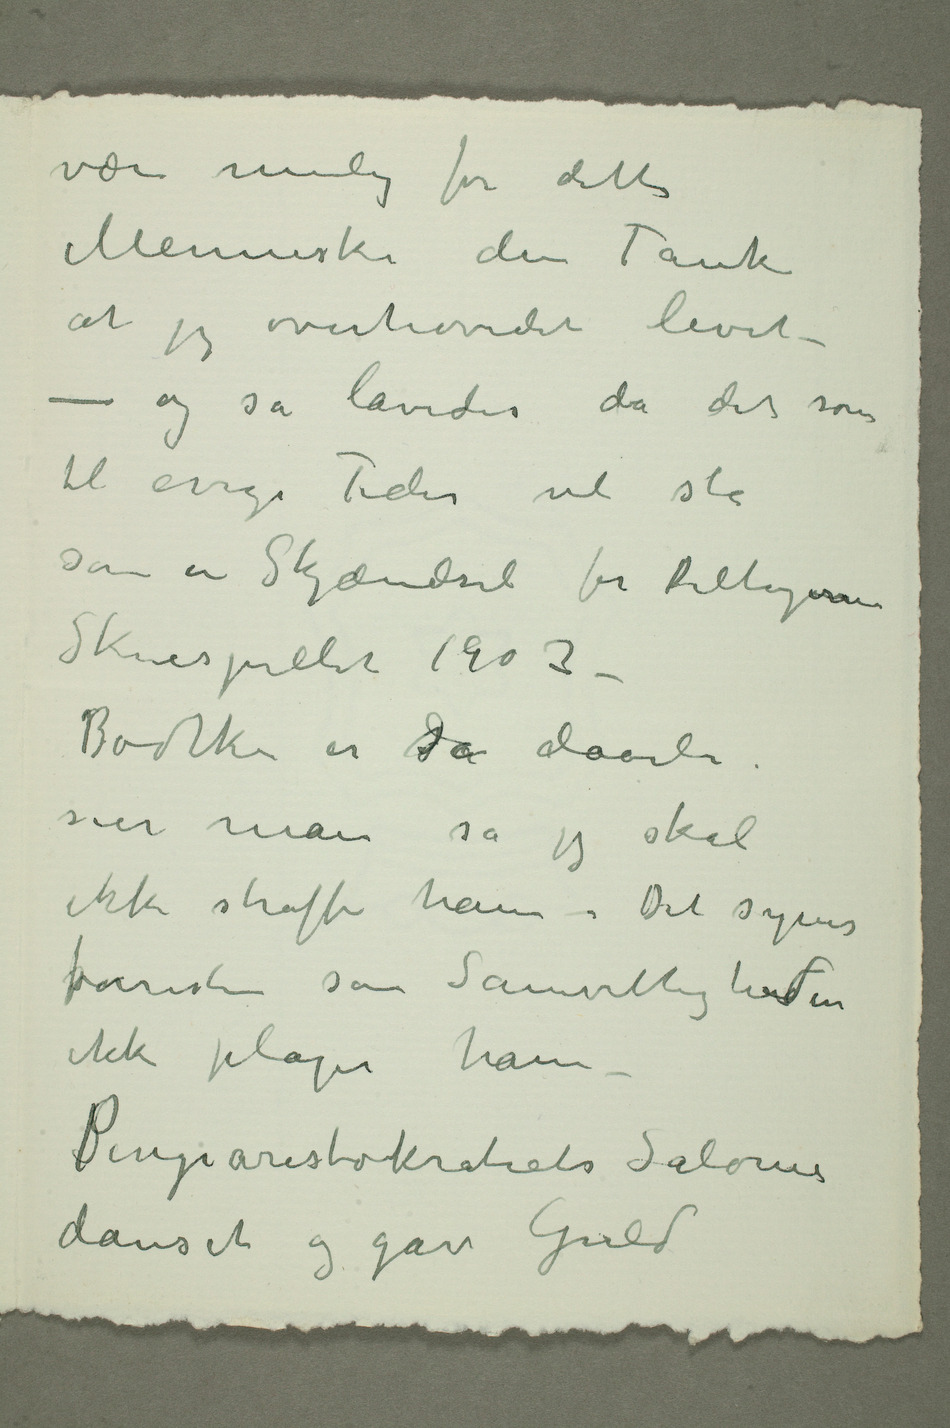 være mulig for dette
Menneske den Tanke
at jeg overhovedet levet –
– og så lavedes da det som
til evige Tider vil stå
som en Skjændsel for Deltagerne
Skuespillet 1903 –
Bødtker er da daarlig.
sier man så jeg skal
ikke straffe ham – Det synes
forresten som Samvittigheden
ikke plager ham –
Pengearistokratiets Salome
danset og gav Guld